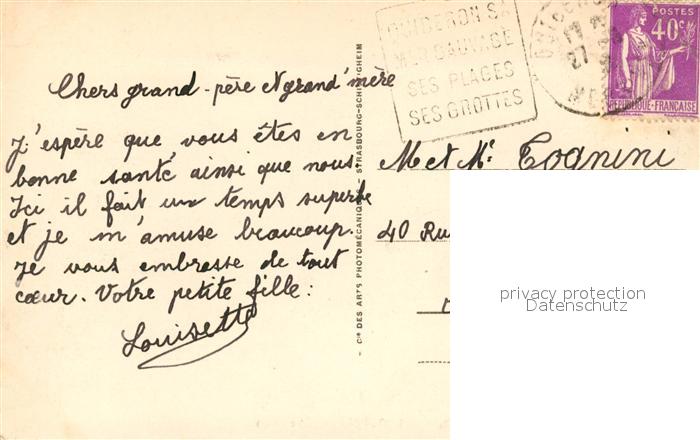 Chers grand-père et grand'mère
J'espère que vous êtes en
bonne santé ainsi que nous
Ici il fait un temps superbe
et je m'amuse beaucoup.
Je vous embrasse de tout
cœur. Votre petite fille:
Louisette
Cie DES ARTS PHOTOMÉCANIQUES - STRASBOURG-SCHILTIGHEIM
SA
SAUVAGE
SES PLAGES
SES GROTTES
17
27
POSTES
40c
RÉPUBLIQUE-FRANÇAISE
M et Me Tognini
40 Ru
privacy protection
Datenschutz